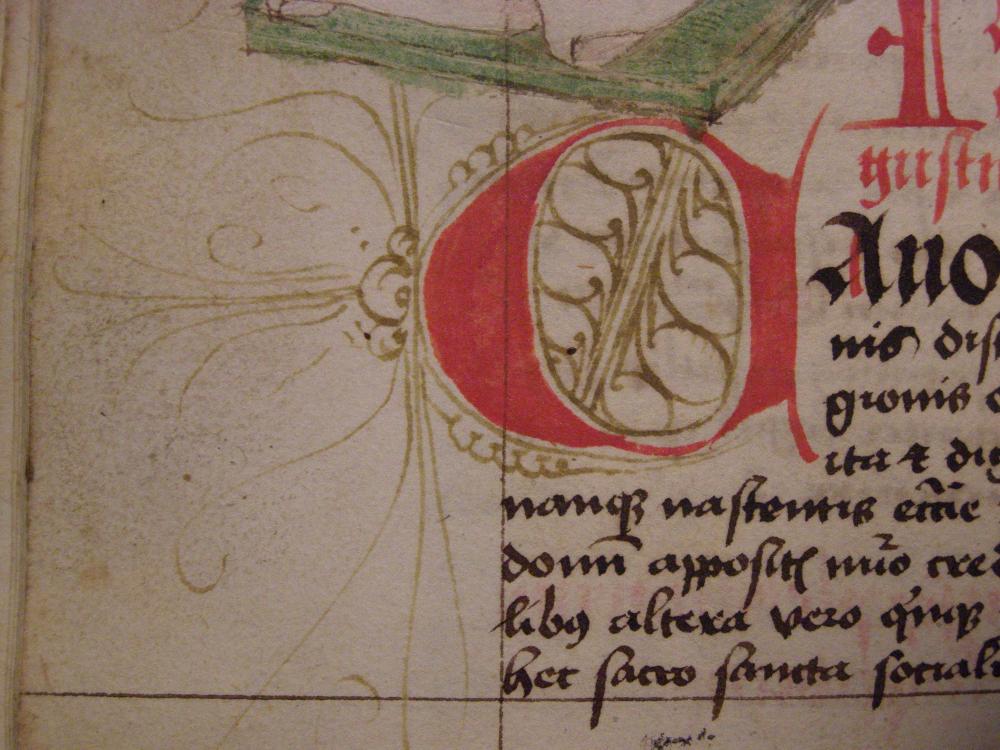 gustn
C Ano
nis dis
gionis
ita ⁊ dig
nanqꝫ nascentis eccłie
domī apposit nūo cred
libꝰ altera vero qͥnqꝫ
hec sacro sancta sociali